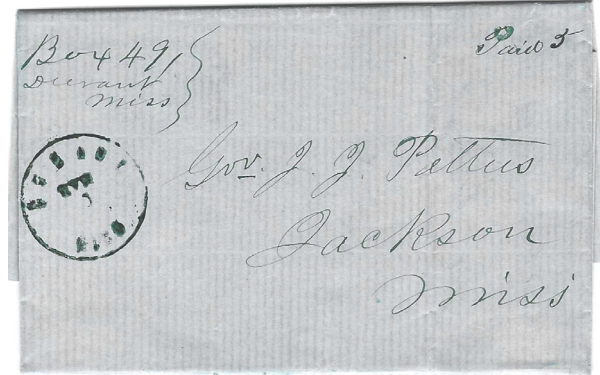 Box 491
Durant
Miss
Paid 5
Gov. J. J. Pettus
Jackson
Miss